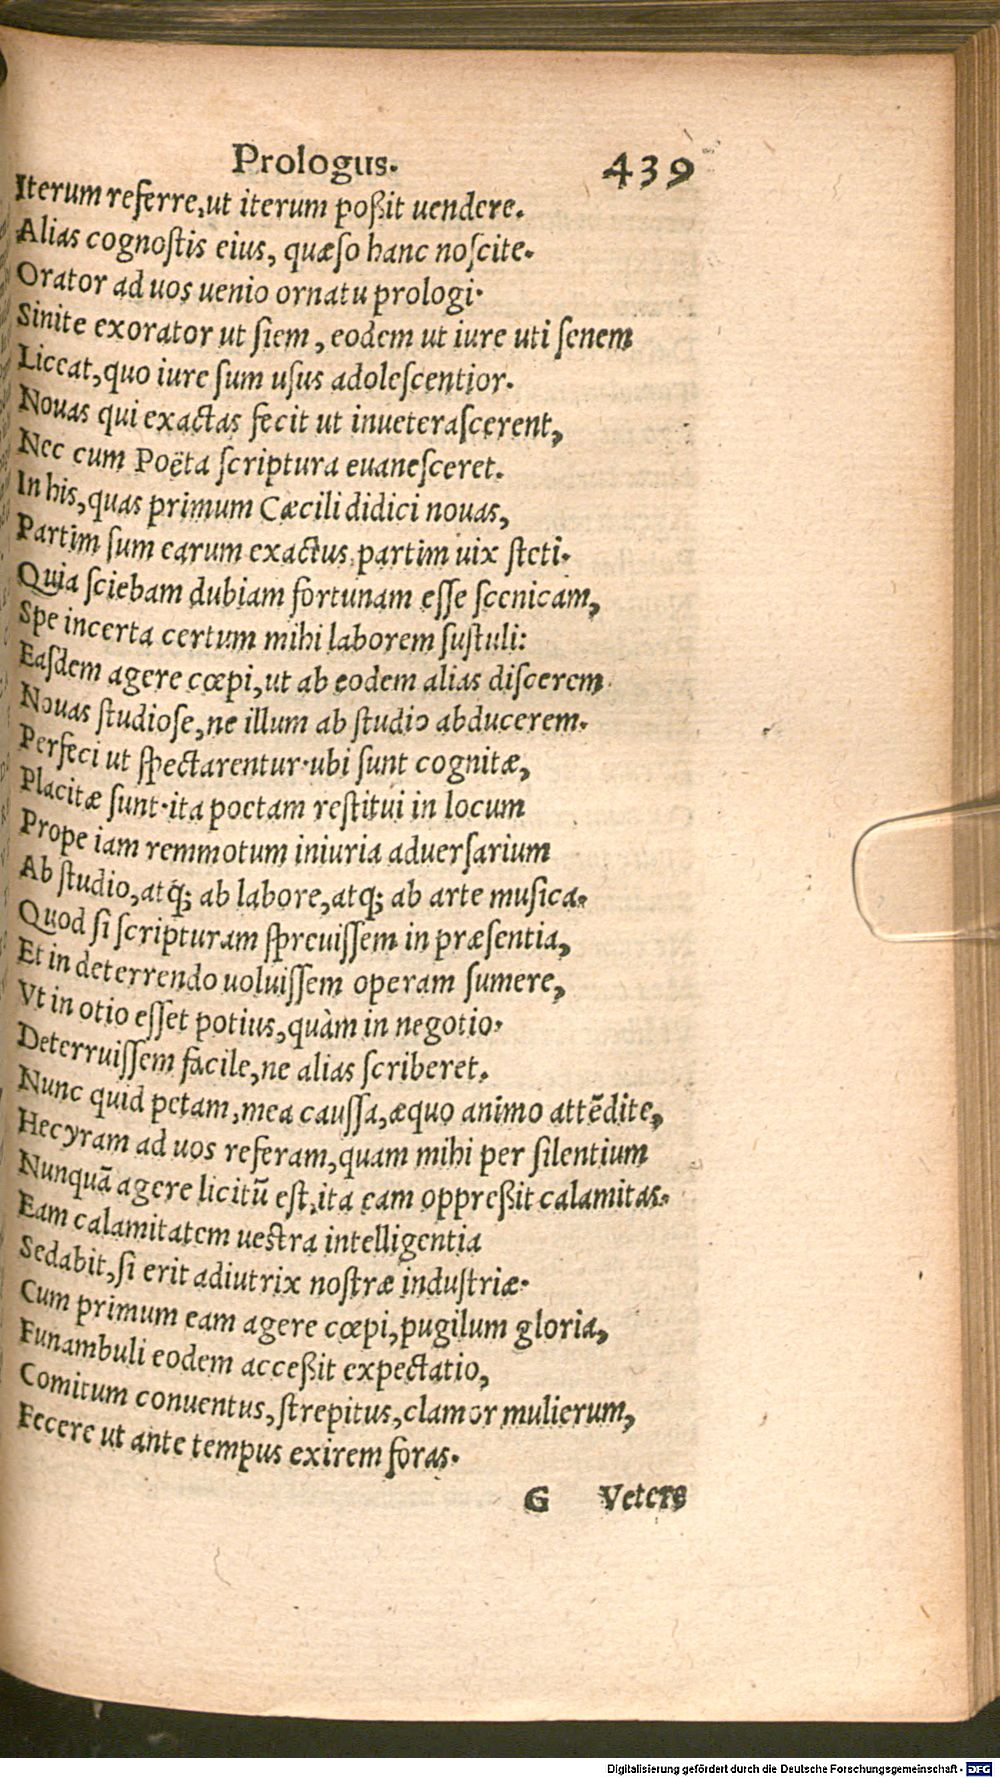 Prologus. 439
Iterum referre,ut iterum poßit uendere.
Alias cognoſtis eius, quæſo hanc noſcite.
Orator ad uos uenio ornatu prologi.
Sinite exorator ut ſiem, eodem ut iure uti ſenem
Liceat,quo iure ſum uſus adoleſcentior.
Nouas qui exactas fecit ut inueteraſcerent,
Nec cum Poëta ſcriptura euaneſceret.
In his,quas primum Cæcili didici nouas,
Partim ſum earum exactus,partim uix ſteti.
Quia ſciebam dubiam fortunam eſſe ſcenicam,
Spe incerta certum mihi laborem ſuſtuli:
Eaſdem agere cœpi,ut ab eodem alias diſcerem.
Nouas ſtudioſe,ne illum ab ſtudio abducerem.
Perfeci ut ſpectarentur.ubi ſunt cognitæ,
Placitæ ſunt.ita poetam reſtitui in locum
Prope iam remmotum iniuria aduerſarium
Ab ſtudio,atq́; ab labore,atq; ab arte muſica.
Quod ſi ſcripturam ſpreuiſſem in præſentia,
Et in deterrendo uoluiſſem operam ſumere,
Vt in otio eſſet potius,quàm in negotio.
Deterruiſſem facile,ne alias ſcriberet.
Nunc quid petam,mea cauſſa,æquo animo attēdite,
Hecyram ad uos referam,quam mihi per ſilentium
Nunquā agere licitū eſt,ita eam oppreßit calamitas.
Eam calamitatem ueſtra intelligentia
Sedabit,ſi erit adiutrix noſtræ induſtriæ.
Cum primum eam agere cœpi,pugilum gloria,
Funambuli eodem acceßit expectatio,
Comitum conuentus,ſtrepitus,clamor mulierum,
Fecere ut ante tempus exirem foras.
G Veters
Digitalisierung gefördert durch die Deutsche Forschungsgemeinschaft - DFG